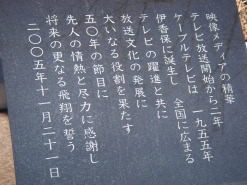 映像メディアの精華
テレビ放送開始から二年
ケーブルテレビは　一九五五年
伊香保に誕生し　全国に広まる
テレビの躍進と共に
放送文化の発展に
大いなる役割を果たす
五〇年の節目に
先人の情熱と尽力に感謝し
将来の更なる飛翔を誓う
二〇〇五年十一月二十一日